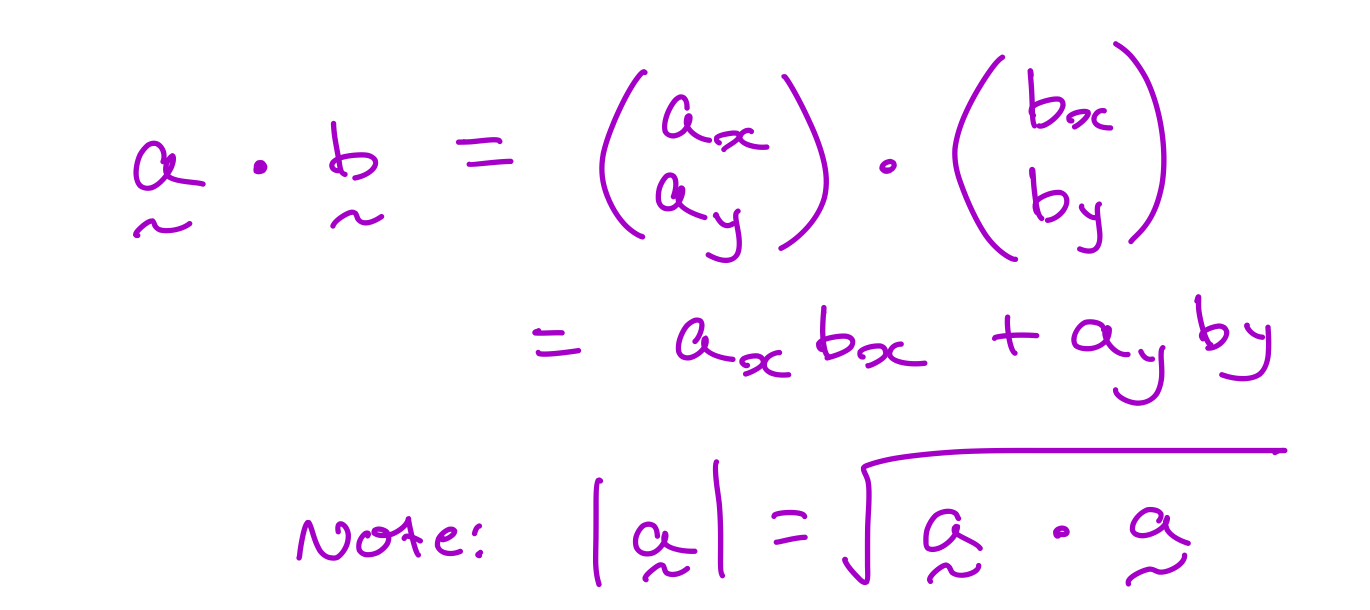 a · b = (a_x a_y) · (b_x b_y)
= a_x b_x + a_y b_y
Note: |a| = √(a · a)